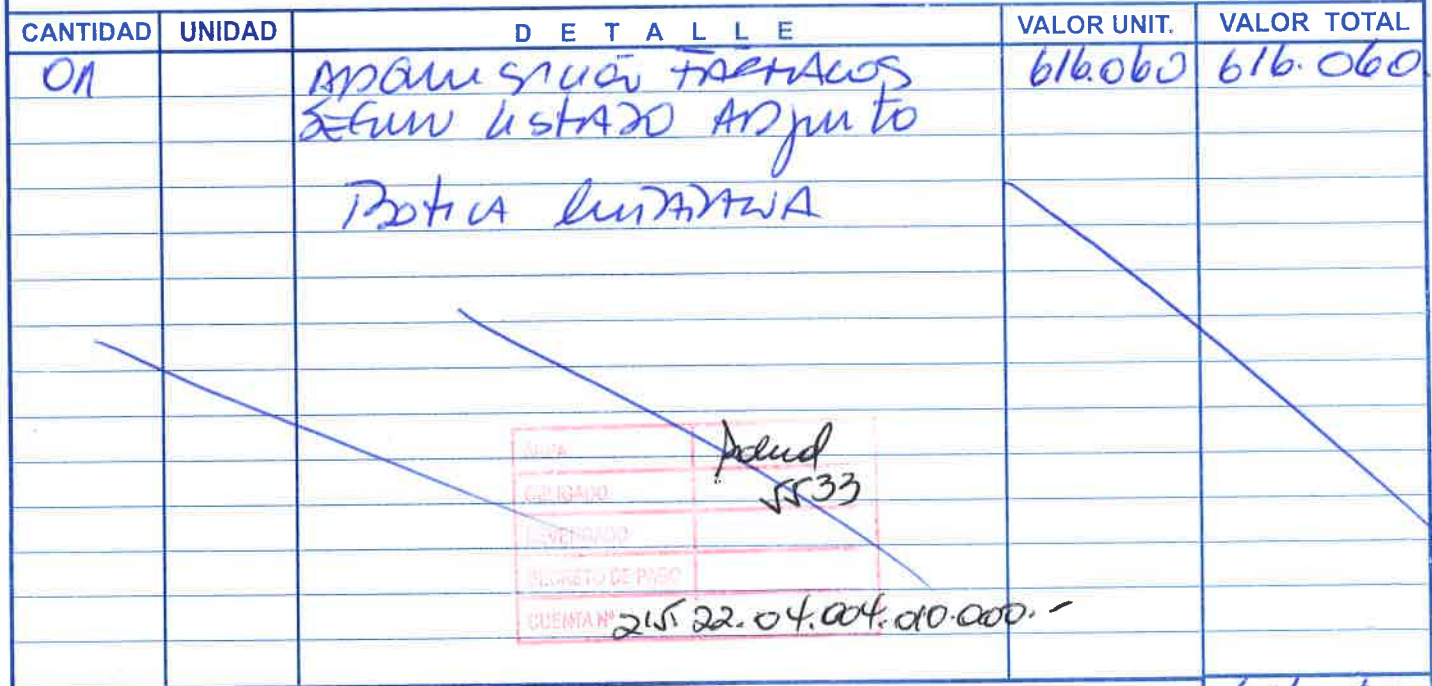 CANTIDAD UNIDAD D E T A L L E VALOR UNIT. VALOR TOTAL
01 ADQUISICIÓN FARMACOS 616.060 616.060
SEGUN LISTADO ADJUNTO
BOTICA CIUDADANA
Salud
OBLIGADO 5533
DEVENGADO
DECRETO DE PAGO
CUENTA Nº 215.22.04.004.010.000.-